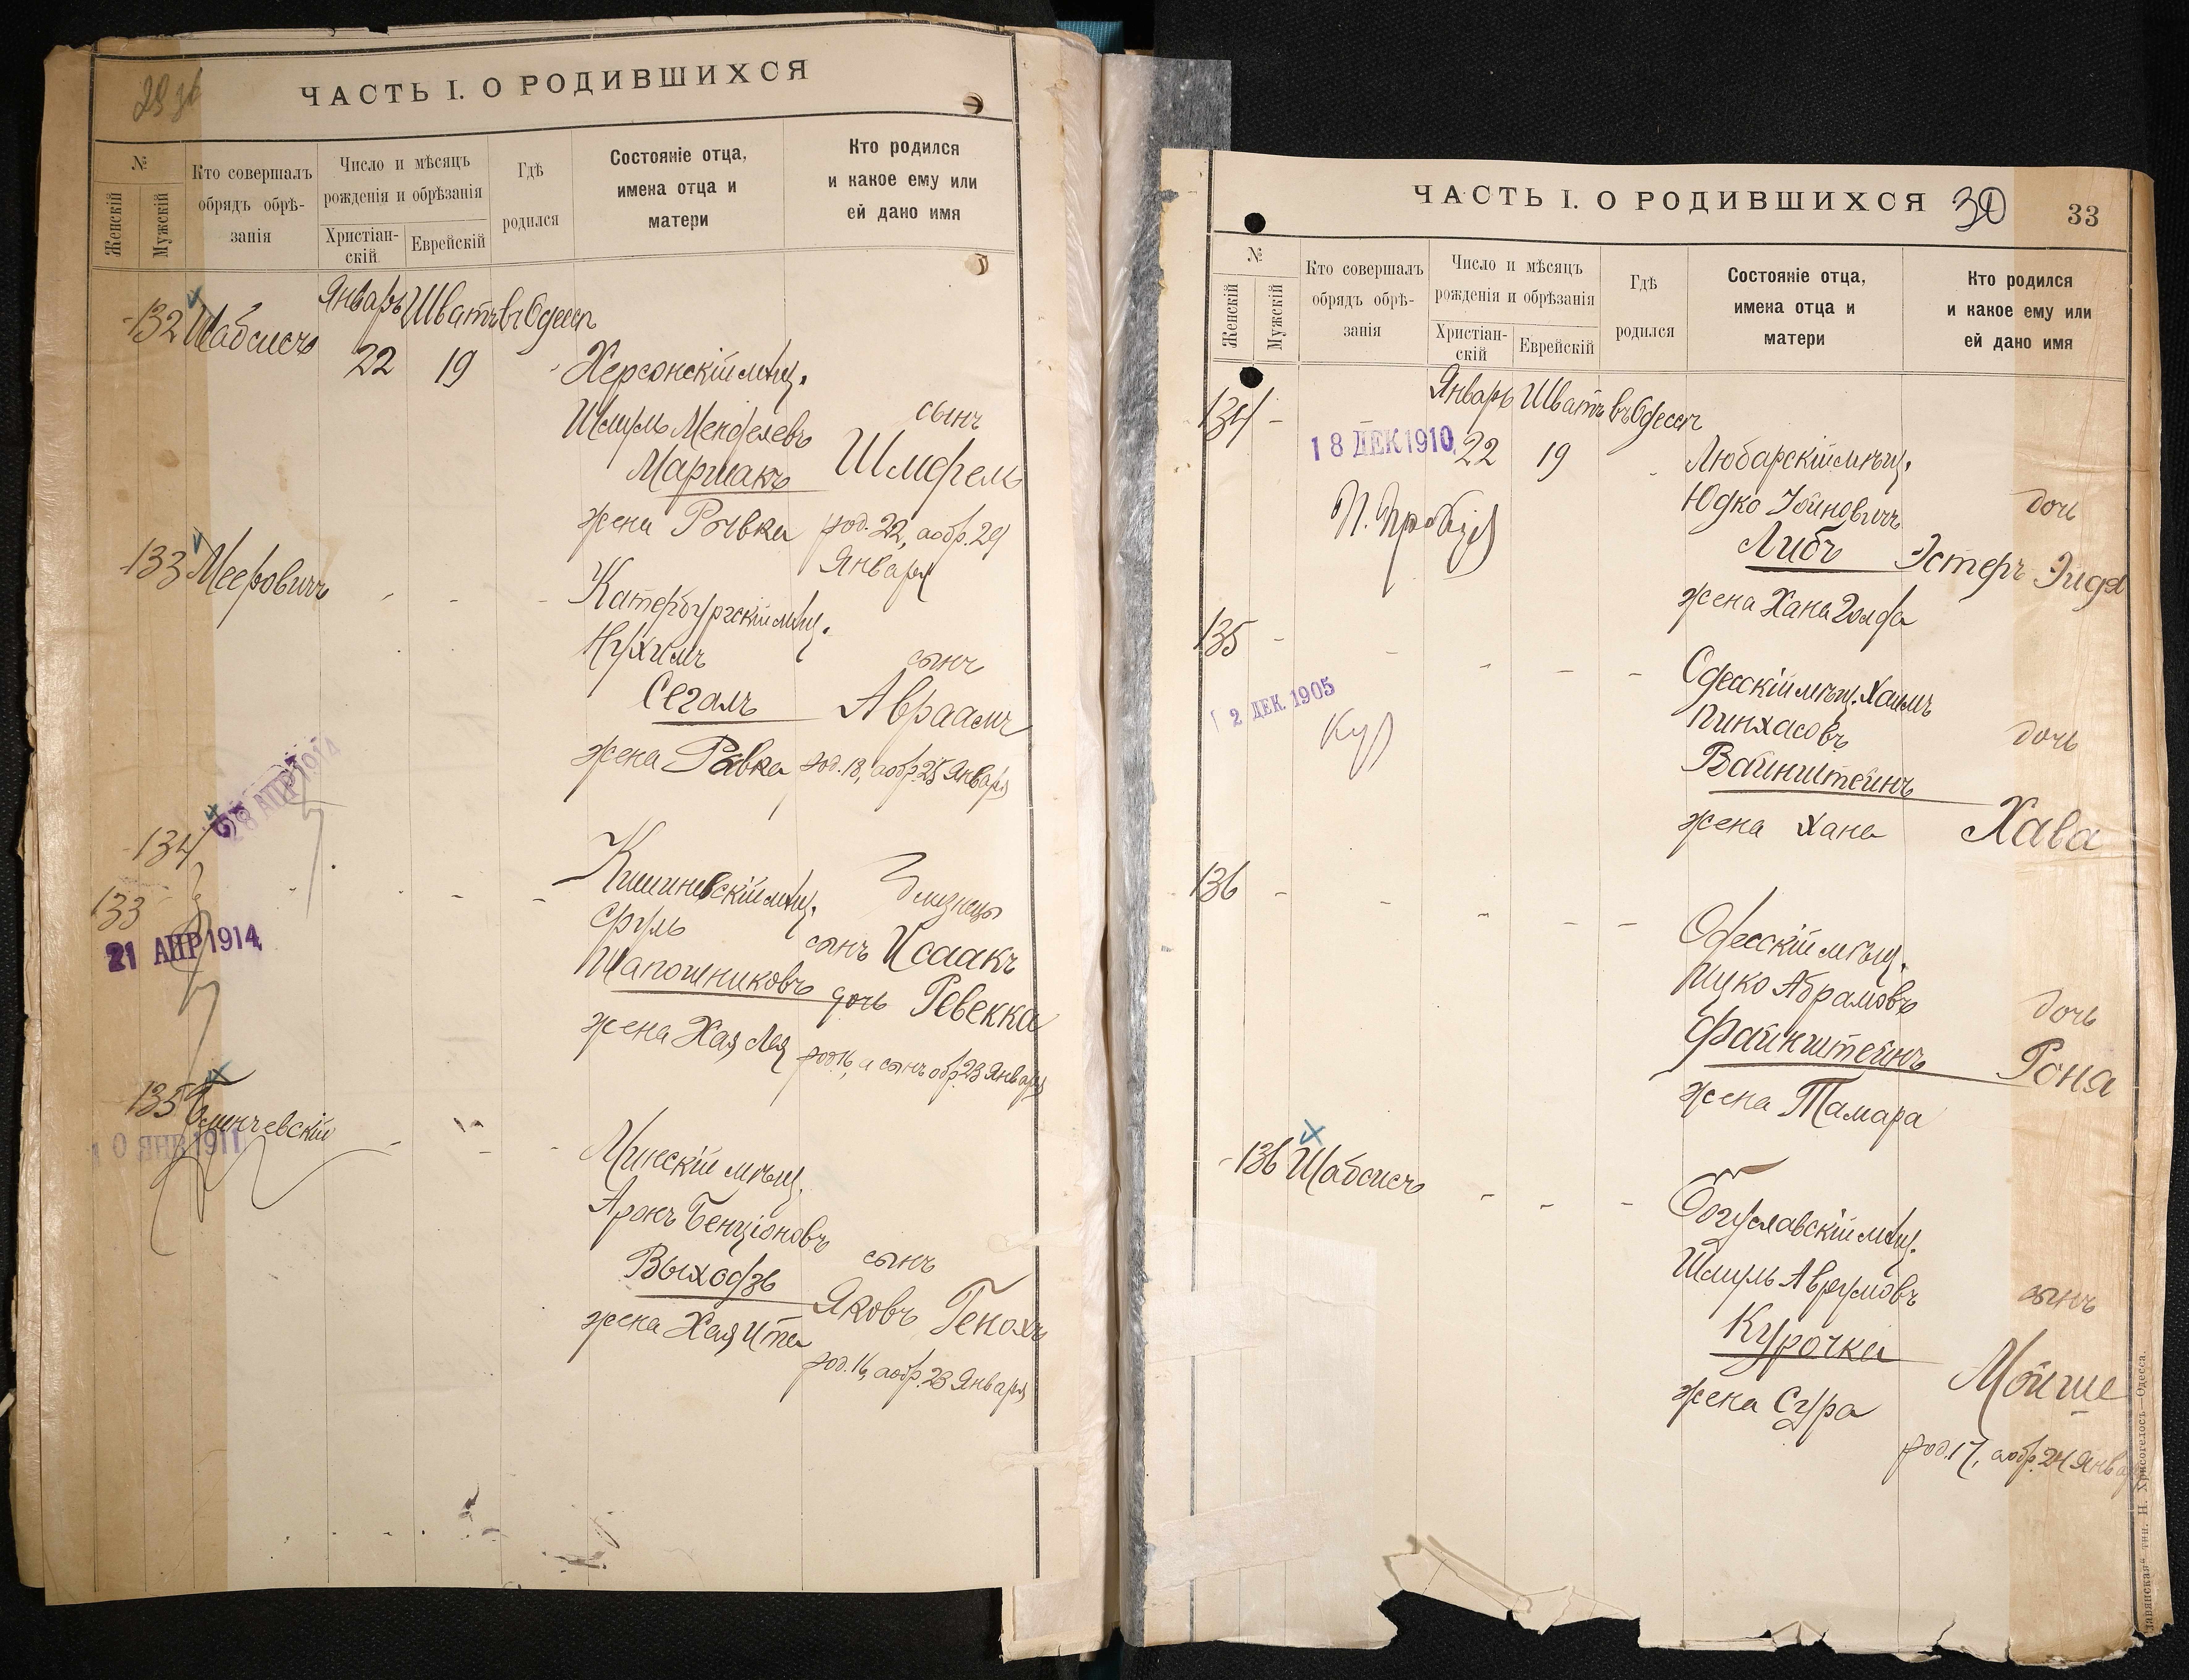 29 зв
ЧАСТЬ I. О РОДИВШИХСЯ
№
Женскій
Мужскій
Кто совершалъ
обрядъ обрѣ-
занія
Число и мѣсяцъ
рожденія и обрѣзанія
Христіан-
скій
Еврейскій
Гдѣ
родился
Состояніе отца,
имена отца и
матери
Кто родился
и какое ему или
ей дано имя
132 Шабсисъ
Январь Шватъ въ Одессѣ
22 19
Херсонскій мѣщ.
Шмуль Менделевъ
сынъ
Маршакъ
жена Рывка
род. 22, а обр. 29
Января
133 Мееровичъ
Катербургскій мѣщ.
Нухимъ
сынъ
Сегалъ Авраамъ
жена Рывка род. 18, а обр. 25 Января
134
28 АПР 1914
133
21 АПР 1914
Кишиневскій мѣщ.
близнецы
Сруль
сынъ Исаакъ
Шапошниковъ дочь Ревекка
жена Хая Лея род. 16, а сынъ обр. 23 Января
135
10 ЯНВ 1911
Минскій мѣщ.
Аронъ Бенціоновъ
сынъ
Выходзъ
Яковъ Генохъ
жена Хая Ита
род. 16, а обр. 23 Января
ЧАСТЬ I. О РОДИВШИХСЯ 30 33
№
Женскій
Мужскій
Кто совершалъ
обрядъ обрѣ-
занія
Число и мѣсяцъ
рожденія и обрѣзанія
Христіан-
скій
Еврейскій
Гдѣ
родился
Состояніе отца,
имена отца и
матери
Кто родился
и какое ему или
ей дано имя
134
Январь Шватъ въ Одессѣ
18 ДЕК 1910
22 19
Любарскій мѣщ.
Юдко Іойновичъ
дочь
Либъ Эстеръ Эйдя
жена Хана Голда
135
2 ДЕК. 1905
Одесскій мѣщ. Хаимъ
Пинхасовъ
дочь
Вайнштейнъ
жена Хана Хава
136
Одесскій мѣщ.
Ицко Абрамовъ
дочь
Файнштейнъ Роня
жена Тамара
136 Шабсисъ
Богуславскій мѣщ.
Шмуль Аврумовъ
сынъ
Курочка
Мойше
жена Сура
род. 17, а обр. 24 Января
тип. Н. Хрисогелосъ—Одесса.